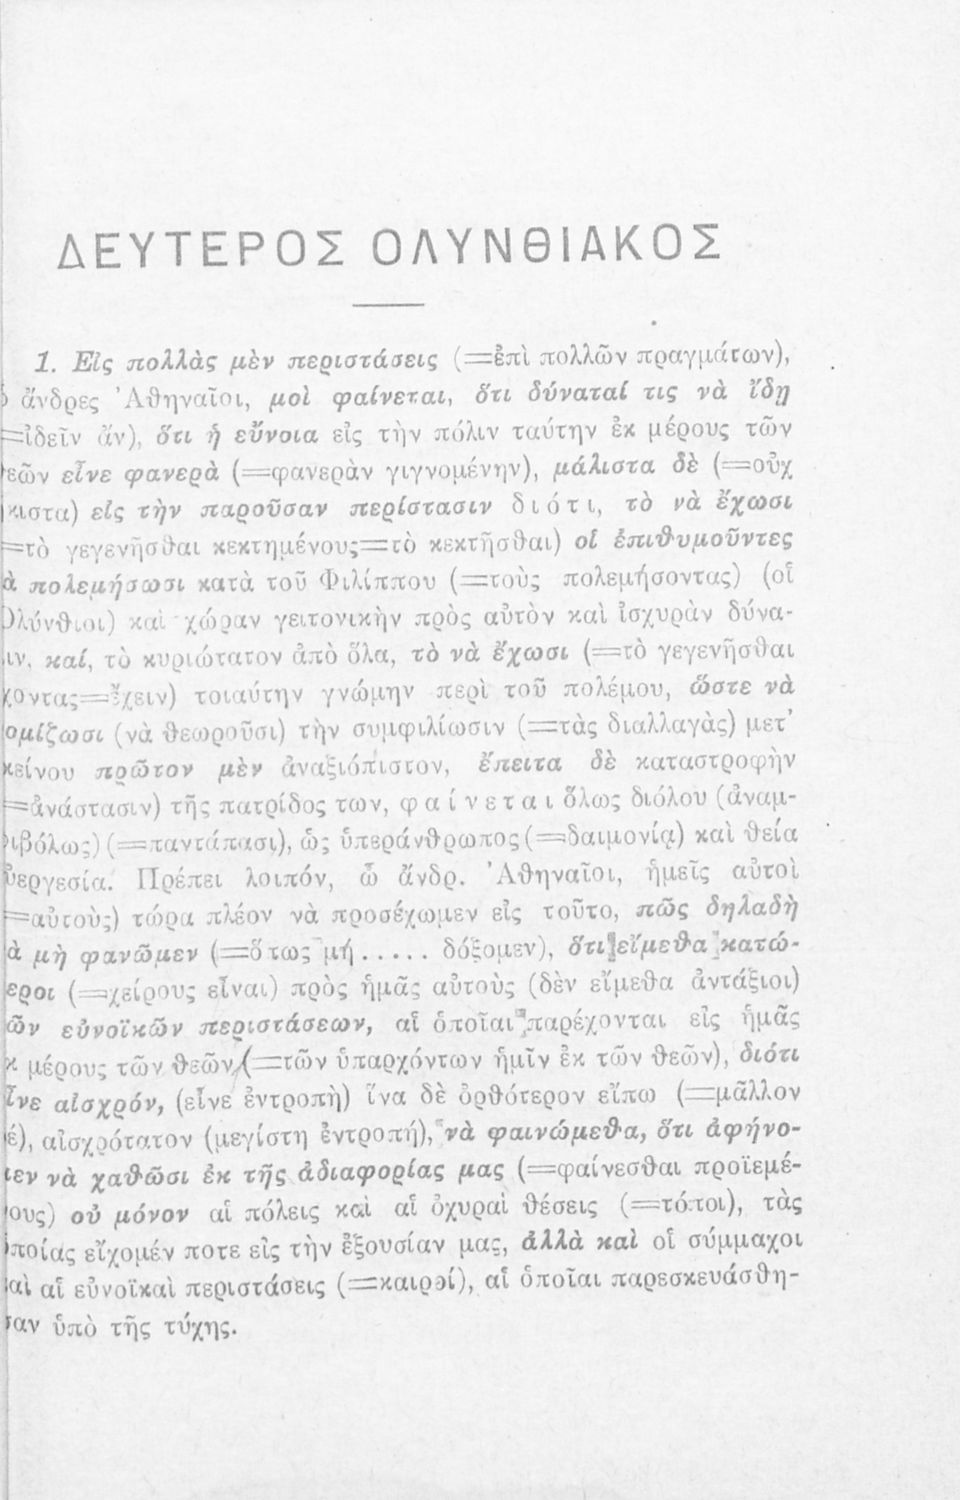 ΔΕΥΤΕΡΟΣ ΟΛΥΝΘΙΑΚΟΣ
1. Εἰς πολλὰς μὲν περιστάσεις (=ἐπὶ πολλῶν πραγμάτων),
ἄνδρες Ἀθηναῖοι, μοὶ φαίνεται, ὅτι δύναταί τις νὰ ἴδῃ
=ἰδεῖν ἄν), ὅτι ἡ εὔνοια εἰς τὴν πόλιν ταύτην ἐκ μέρους τῶν
εῶν εἶνε φανερὰ (=φανερὰν γιγνομένην), μάλιστα δὲ (=οὐχ
κιστα) εἰς τὴν παροῦσαν περίστασιν διότι, τὸ νὰ ἔχωσι
=τὸ γεγενῆσθαι κεκτημένους=τὸ κεκτῆσθαι) οἱ ἐπιθυμοῦντες
ὰ πολεμήσωσι κατὰ τοῦ Φιλίππου (=τοὺς πολεμήσοντας) (οἱ
Ὀλύνθιοι) καὶ χώραν γειτονικὴν πρὸς αὐτὸν καὶ ἰσχυρὰν δύνα-
ιν, καί, τὸ κυριώτατον ἀπὸ ὅλα, τὸ νὰ ἔχωσι (=τὸ γεγενῆσθαι
χοντας=ἔχειν) τοιαύτην γνώμην περὶ τοῦ πολέμου, ὥστε νὰ
ομίζωσι (νὰ θεωροῦσι) τὴν συμφιλίωσιν (=τὰς διαλλαγὰς) μετ'
κείνου πρῶτον μὲν ἀναξιόπιστον, ἔπειτα δὲ καταστροφὴν
=ἀνάστασιν) τῆς πατρίδος των, φαίνεται ὅλως διόλου (ἀναμ-
ιβόλως) (=παντάπασι), ὡς ὑπεράνθρωπος (=δαιμονίᾳ) καὶ θεία
ὐεργεσία. Πρέπει λοιπόν, ὦ ἄνδρ. Ἀθηναῖοι, ἡμεῖς αὐτοὶ
=αὐτοὺς) τώρα πλέον νὰ προσέχωμεν εἰς τοῦτο, πῶς δηλαδὴ
ὰ μὴ φανῶμεν (=ὅπως μή..... δόξομεν), ὅτι εἴμεθα κατώ-
εροι (=χείρους εἶναι) πρὸς ἡμᾶς αὐτοὺς (δὲν εἴμεθα ἀντάξιοι)
ῶν εὐνοϊκῶν περιστάσεων, αἱ ὁποῖαι παρέχονται εἰς ἡμᾶς
κ μέρους τῶν θεῶν (=τῶν ὑπαρχόντων ἡμῖν ἐκ τῶν θεῶν), διότι
ἶνε αἰσχρόν, (εἶνε ἐντροπὴ) ἵνα δὲ ὀρθότερον εἴπω (=μᾶλλον
έ), αἰσχρότατον (μεγίστη ἐντροπή), νὰ φαινώμεθα, ὅτι ἀφήνο-
εν νὰ χαθῶσι ἐκ τῆς ἀδιαφορίας μας (=φαίνεσθαι προϊεμέ-
ους) οὐ μόνον αἱ πόλεις καὶ αἱ ὀχυραὶ θέσεις (=τόποι), τὰς
ποίας εἴχομέν ποτε εἰς τὴν ἐξουσίαν μας, ἀλλὰ καὶ οἱ σύμμαχοι
αὶ αἱ εὐνοϊκαὶ περιστάσεις (=καιροί), αἱ ὁποῖαι παρεσκευάσθη-
σαν ὑπὸ τῆς τύχης.